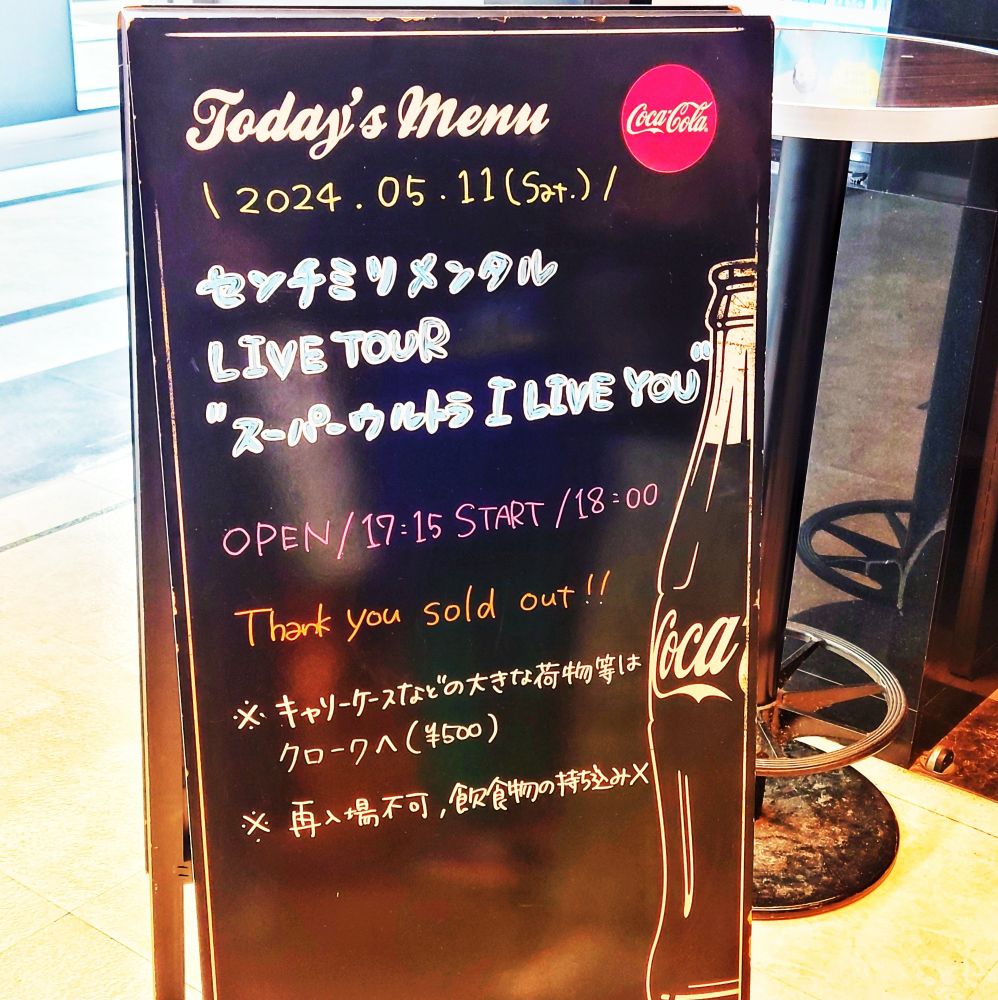 Today's Menu
Coca-Cola
\ 2024.05.11(Sat.) /
センチミリメンタル
LIVE TOUR
"スーパーウルトラ I LIVE YOU"
OPEN/17:15 START/18:00
Thank you sold out!!
Coca
※ キャリーケースなどの大きな荷物等は
クロークへ(¥500)
※ 再入場不可,飲食物の持ち込み×